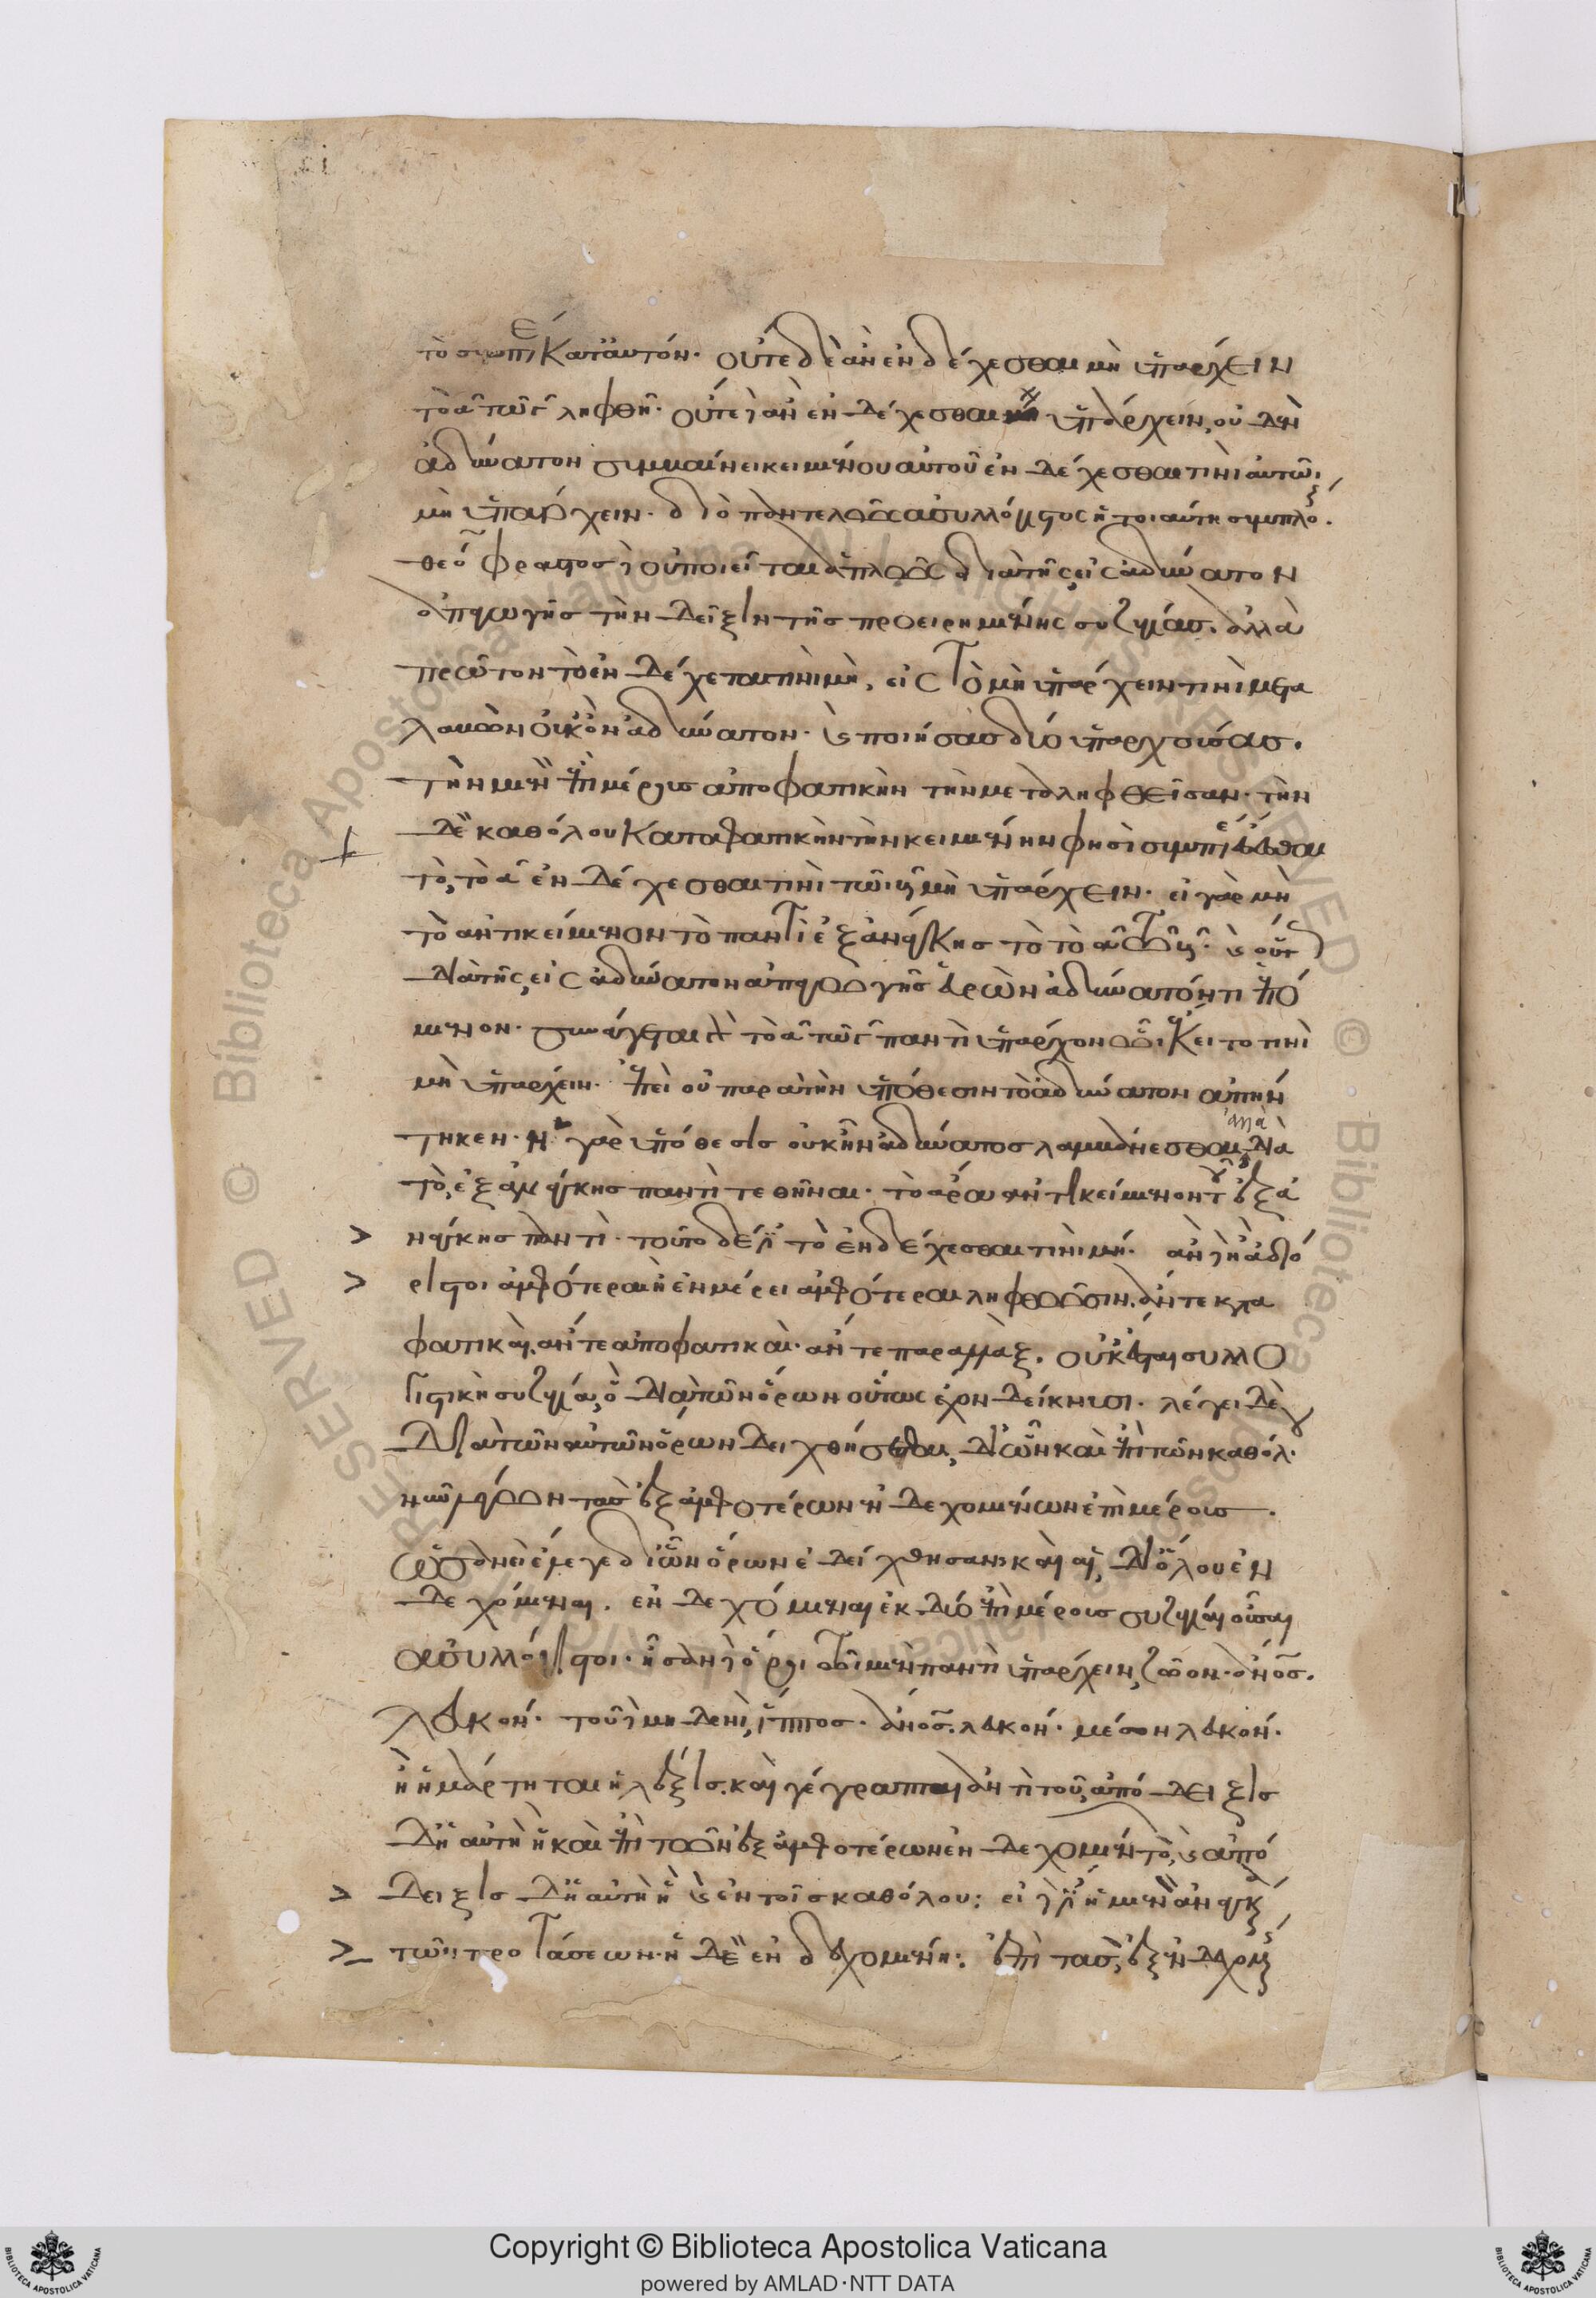 το συμπε κατ' αυτόν. ούτε δὲ ἂν ἐνδέχεσθαι μὴ ὑπάρχειν
τὸ α τῶ γ ληφθῆ. οὔτε ἂν ἐνδέχεσθαι ὑπάρχειν, οὐδὲν
ἀδύνατον συμβαίνει κειμένου αὐτοῦ ἐνδέχεσθαι τινὶ αὐτῶ
μὴ ὑπάρχειν. διὸ παντελῶς ἀσυλλόγιστος ἡ τοιαύτη συμπλο.
θεόφραστος οὐ ποιεῖται ἁπλῶς διὰ τῆς εἰς ἀδύνατον
ἀπαγωγῆς τὴν δεῖξιν τῆς προειρημένης συζυγίας. ἀλλὰ
πρῶτον τὸ ἐνδέχεται τινὶ μὴ, εἰς τὸ μὴ ὑπάρχειν τινὶ μετα
λαβὼν οὐκ ὂν ἀδύνατον. καὶ ποιήσας δύο ὑπαρχούσας.
τὴν μὲν ἐπὶ μέρους ἀποφατικὴν τὴν μεταληφθεῖσαν. τὴν
δὲ καθόλου καταφατικὴν τὴν κειμένην φησὶ συμπε
τὸ, τὸ α ἐνδέχεσθαι τινὶ τῶ γ μὴ ὑπάρχειν. εἰ γὰρ μὴ
τὸ ἀντικείμενον τὸ παντὶ ἐξ ἀνάγκης τὸ α τῶ γ. καὶ οὕτ
διὰ τῆς εἰς ἀδύνατον ἀπαγωγῆς ὁρῶν ἀδύνατόν τι ἑπό
μενον. συνάγεται τὸ α τῶ παντὶ ὑπάρχον ὧ ἔκειτο τινὶ
μὴ ὑπάρχειν. ἐπεὶ οὐ παρὰ τὴν ὑπόθεσιν τὸ ἀδύνατον ἀπήν
τηκεν. ἡ γὰρ ὑπόθεσις οὐκ ἦν ἀδύνατος λαμβάνεσθαι ἀλλὰ διὰ
τὸ, ἐξ ἀνάγκης παντὶ τεθῆναι. τὸ ἄρα ἀντικείμενον τ ἐξ ἀ
νάγκης παντὶ. τοῦτο δέ ἐστι τὸ ἐνδέχεσθαι τινὶ μή. ἀδιό
ριστοι ἀμφότεραι ἢ ἐν μέρει ἀμφότεραι ληφθῶσιν. ἄν τε κατα
φατικαὶ, ἄν τε ἀποφατικαὶ. ἄν τε παραλλὰξ. οὐκ ἔσται συλλο
γιστικὴ συζυγία, ὃ διὰ τῶν ὅρων οὕτως ἔχον δείκνυσι. λέγει δὲ
διὰ τῶν αὐτῶν ὅρων δειχθήσεσθαι, δι' ὧν καὶ ἐπὶ τῶν καθόλ.
τὰς ἐξ ἀμφοτέρων ἐνδεχομένων ἐπὶ μέρους.
ὡς ἂν εἰ ἔλεγε δι' ὧν ὅρων ἐδείχθησαν καὶ αἱ δι' ὅλου ἐν
δεχόμεναι. ἐνδεχόμεναι ἐκ δύο ἐπὶ μέρους συζυγίαι οὖσαι
ἀσυλλόγιστοι. ἦσαν ὅροι τοῦ μὲν παντὶ ὑπάρχειν, ζῶον. ἄνος.
λευκόν. τοῦ μηδενὶ, ἵππος. ἄνος. λευκόν. μέσον λευκόν.
ἢ ἡμάρτηται ἡ λέξις. καὶ γέγραπται ἀντὶ τοῦ, ἀπόδειξις
δὲ ἡ αὐτὴ ἣ καὶ ἐπὶ τῶν ἐξ ἀμφοτέρων ἐνδεχομέν τὸ, καὶ ἀπό
δειξις δὲ ἡ αὐτὴ ἣ καὶ ἐν τοῖς καθόλου: εἰ ἡ μὲν ἀναγκ
τῶν προτάσεων. ἡ δὲ ἐνδεχομένη: ἐπὶ τὰς, ἐξ ἐνδεχομ